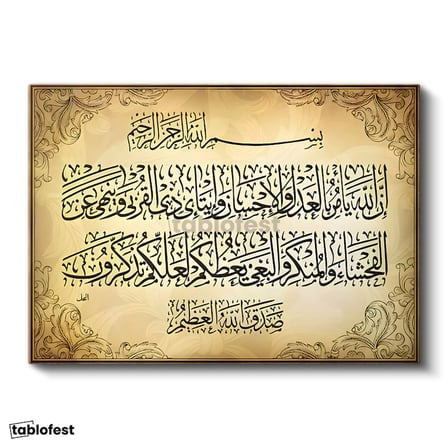 بسم الله الرحمن الرحيم
إن الله يأمر بالعدل والإحسان وإيتاء ذي القربى وينهى عن
الفحشاء والمنكر والبغي يعظكم لعلكم تذكرون
النحل
صدق الله العظيم
tablofest
tablofest